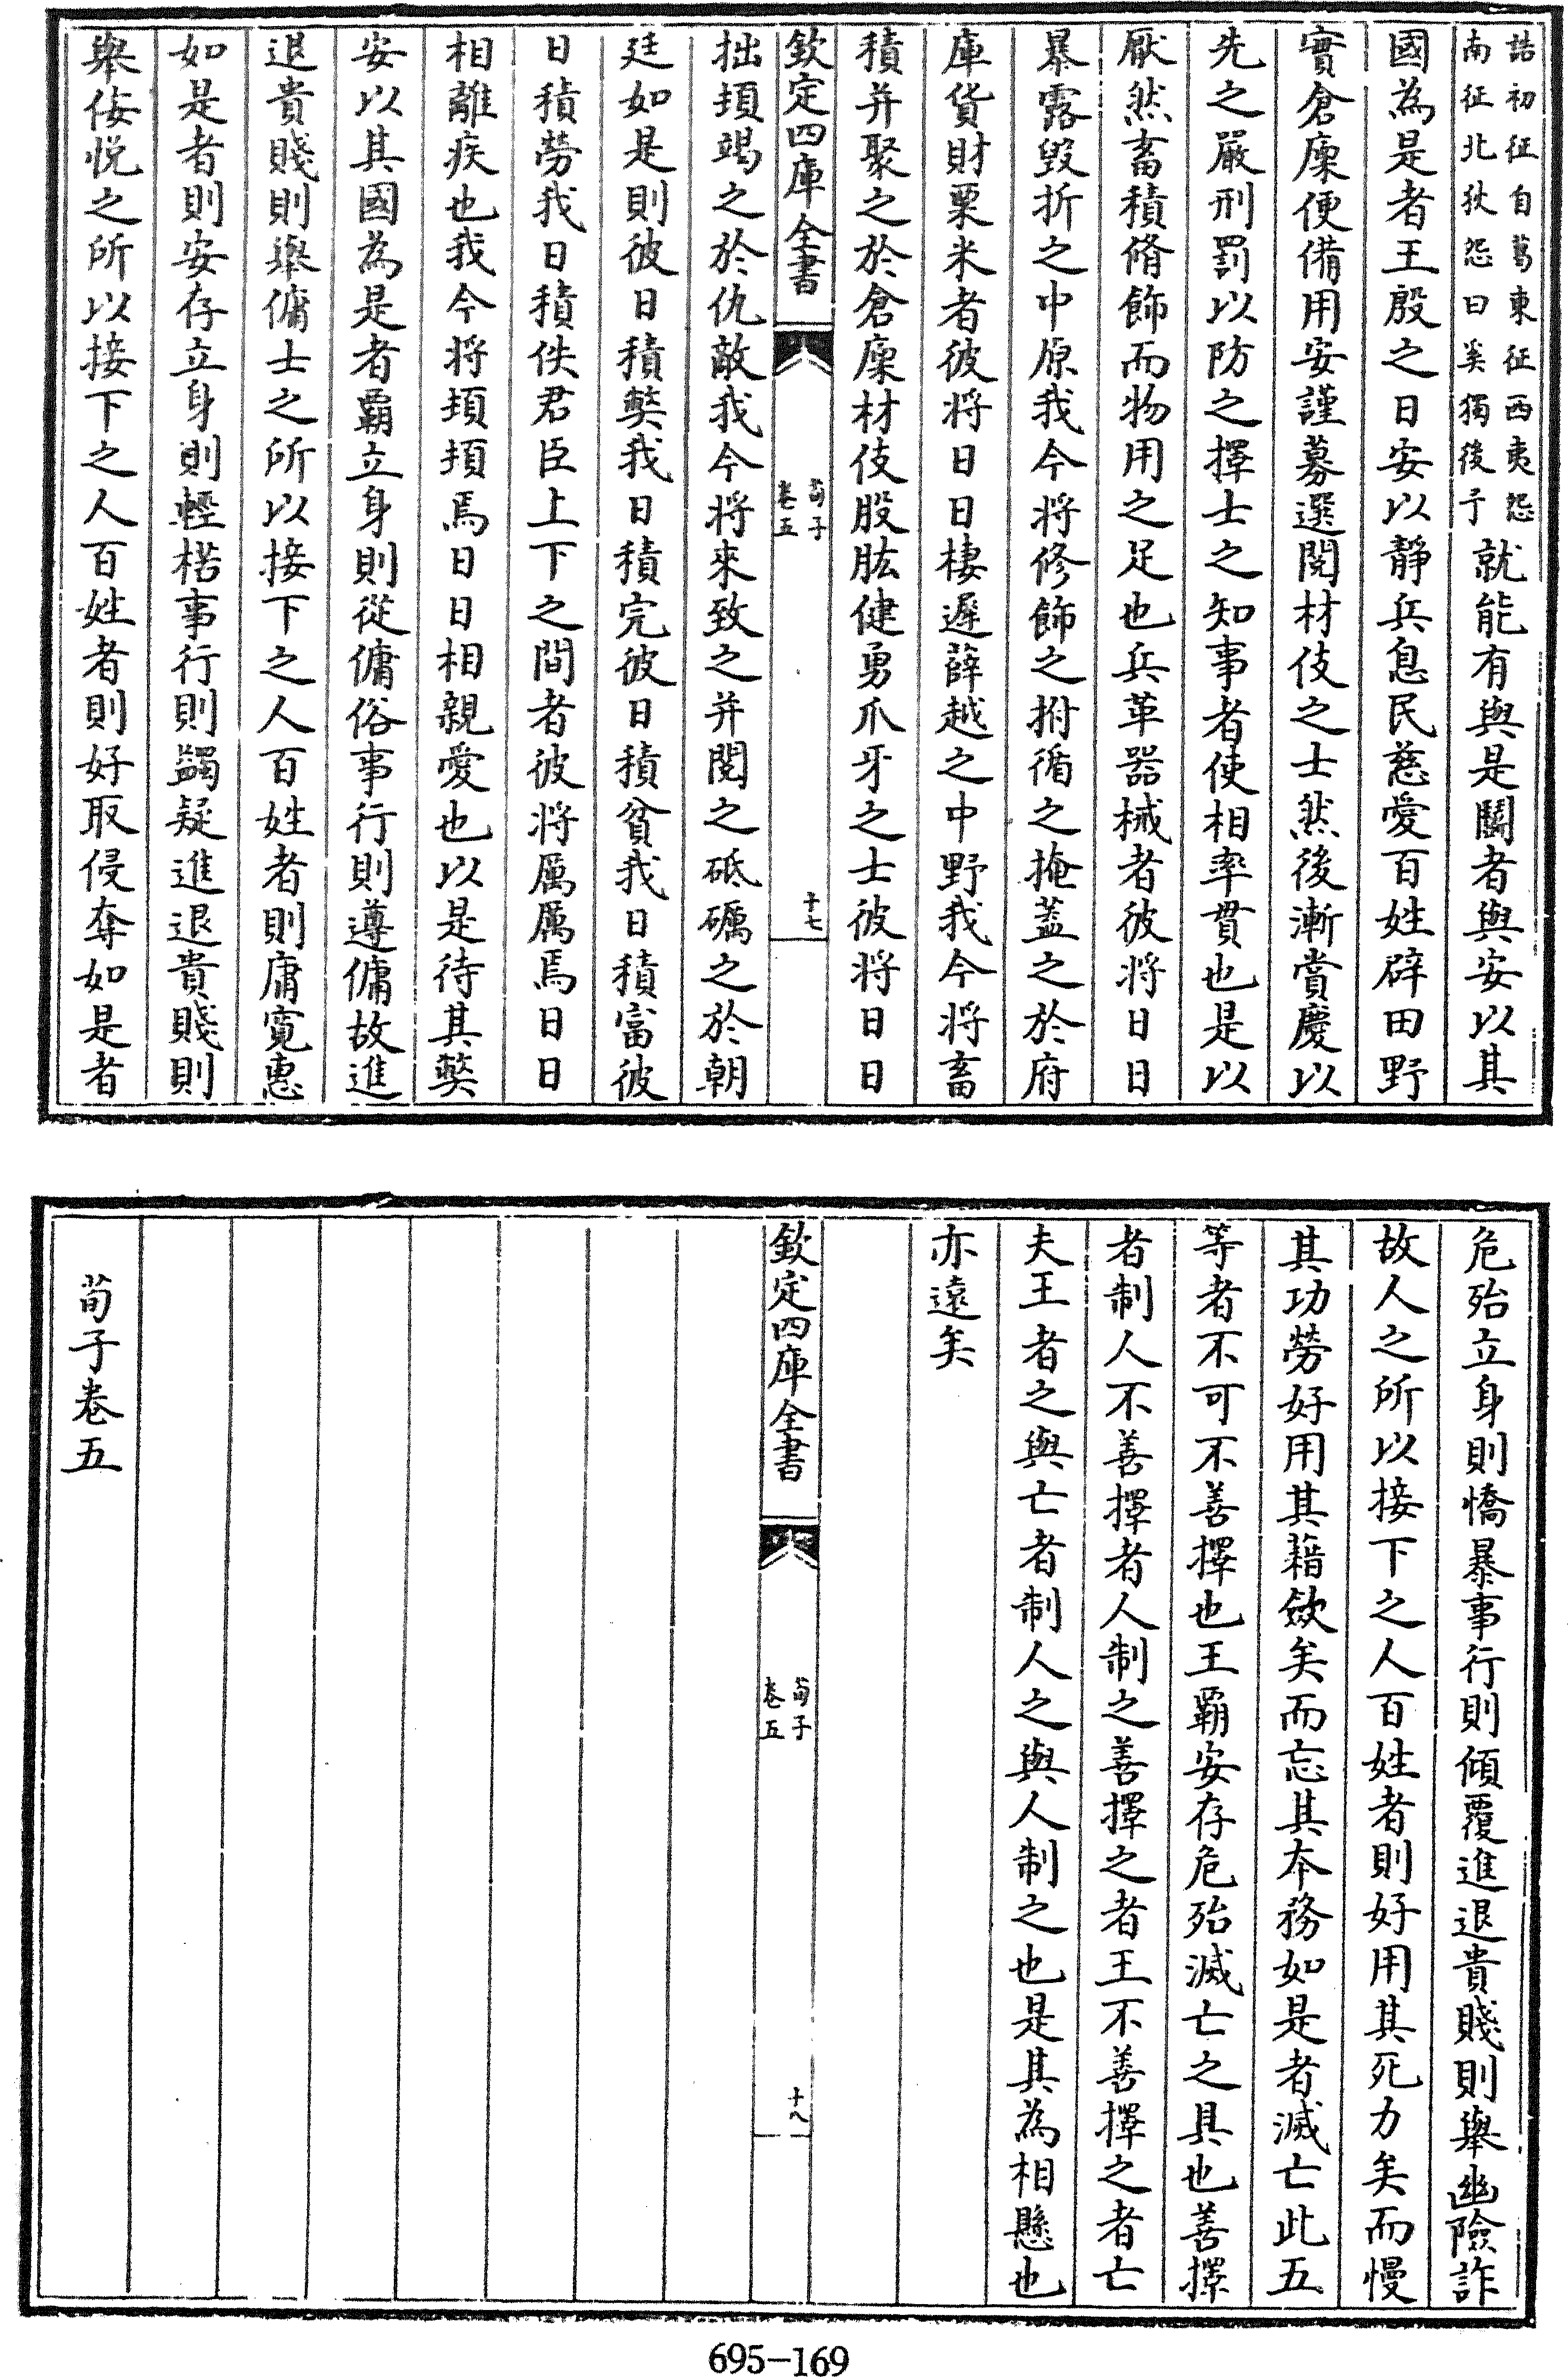 誥初征自葛東征西夷怨
南征北狄怨曰奚獨後予
就能有與是鬬者與安以其
國為是者王殷之日安以靜兵息民慈愛百姓辟田野
實倉廩便備用安謹募選閱材伎之士然後漸賞慶以
先之嚴刑罰以防之擇士之知事者使相率貫也是以
厭然畜積脩飾而物用之足也兵革器械者彼將日日
暴露毀折之中原我今將修飾之拊循之掩蓋之於府
庫貨財粟米者彼將日日棲遲薛越之中野我今將畜
積并聚之於倉廩材伎股肱健勇爪牙之士彼將日日
欽定四庫全書
荀子
卷五
十七
拙頓竭之於仇敵我今將來致之并閱之砥礪之於朝
廷如是則彼日積獘我日積完彼日積貧我日積富彼
日積勞我日積佚君臣上下之間者彼將厲厲焉日日
相離疾也我今將頓頓焉日日相親愛也以是待其獘
安以其國為是者霸立身則從傭俗事行則遵傭故進
退貴賤則舉傭士之所以接下之人百姓者則庸寬惠
如是者則安存立身則輕楛事行則蠲疑進退貴賤則
舉佞悅之所以接下之人百姓者則好取侵奪如是者
危殆立身則憍暴事行則傾覆進退貴賤則舉幽險詐
故人之所以接下之人百姓者則好用其死力矣而慢
其功勞好用其藉斂矣而忘其本務如是者滅亡此五
等者不可不善擇也王霸安存危殆滅亡之具也善擇
者制人不善擇者人制之善擇之者王不善擇之者亡
夫王者之與亡者制人之與人制之也是其為相懸也
亦遠矣
欽定四庫全書
荀子
卷五
十八
荀子卷五
695-169